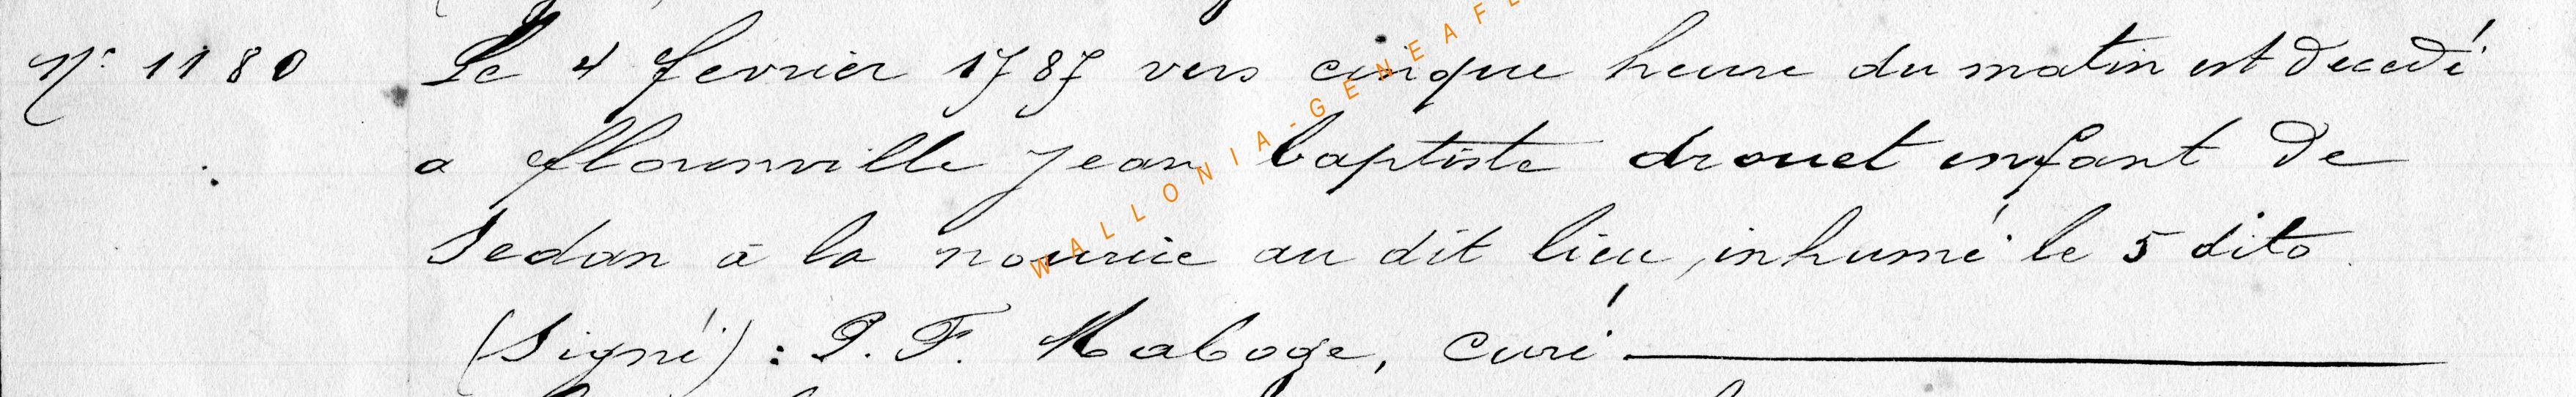 N° 1180 Le 4 fevrier 1787 vers cinque heure du matin est decedé
a florenville jean baptiste drouet enfant de
Sedan à la nourice au dit lieu, inhumé le 5 dito.
(Signé) : P. F. Maboge, Curé
WALLONIA-GENEAF